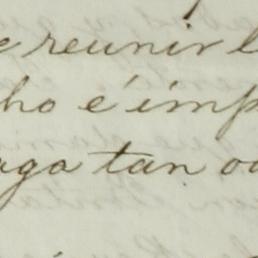 e reunir l
ho é imp
aga tan od